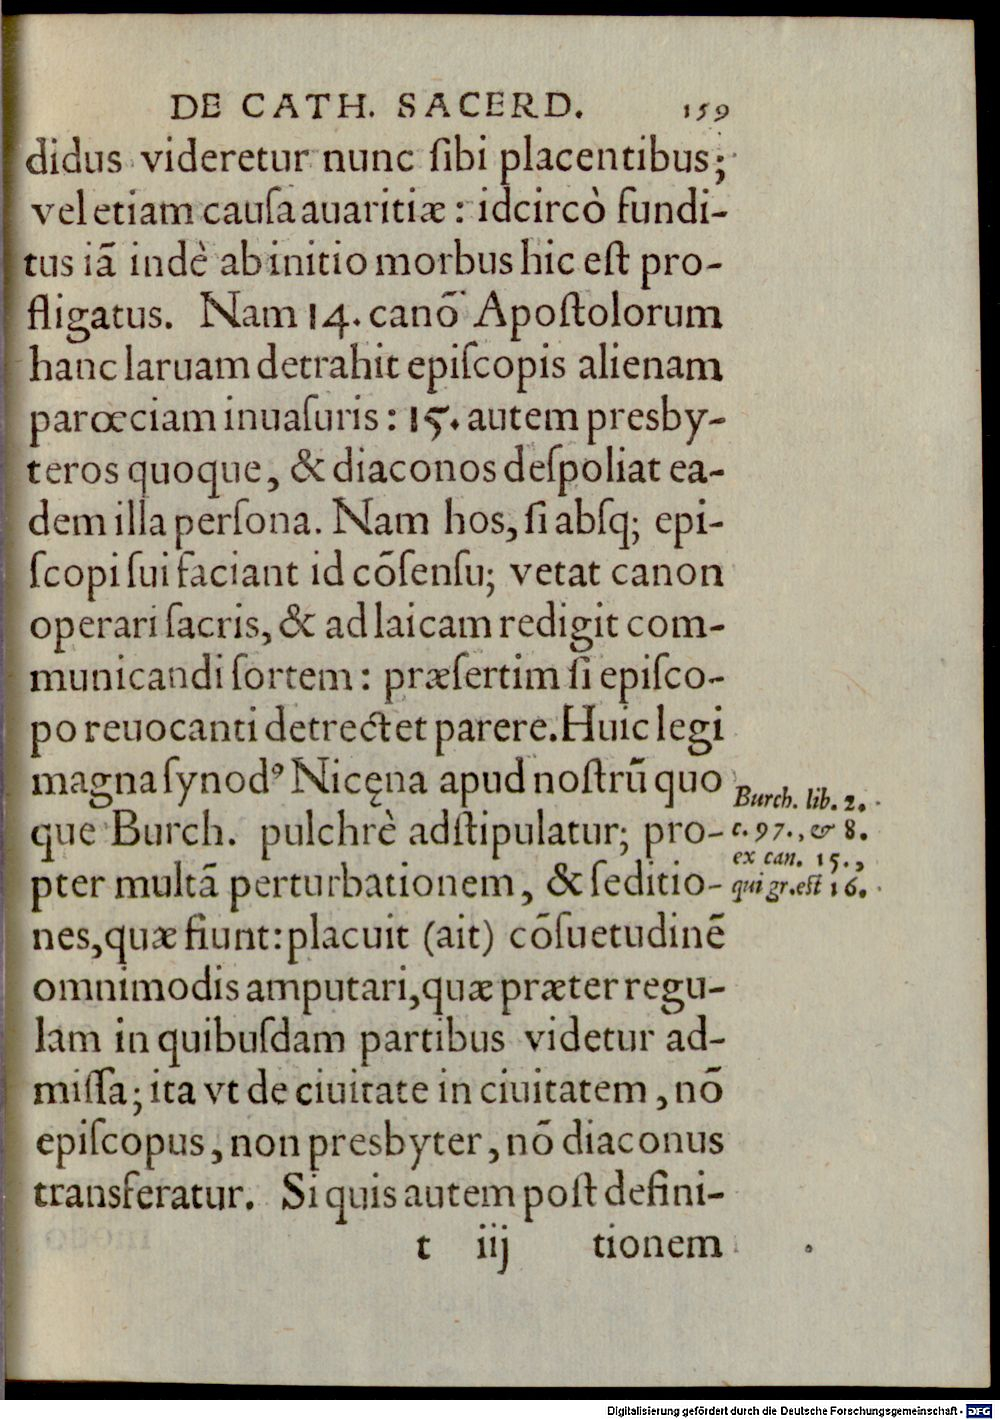 DE CATH. SACERD. 159
didus videretur nunc ſibi placentibus;
vel etiam cauſa auaritiæ: idcircò fundi-
tus iã indè ab initio morbus hic eſt pro-
fligatus. Nam 14. canõ Apoſtolorum
hanc laruam detrahit epiſcopis alienam
parœciam inuaſuris: 15. autem presby-
teros quoque, & diaconos deſpoliat ea-
dem illa perſona. Nam hos, ſi abſq; epi-
ſcopi ſui faciant id cõſenſu; vetat canon
operari ſacris, & ad laicam redigit com-
municandi ſortem: præſertim ſi epiſco-
po reuocanti detrectet parere. Huic legi
magna ſynodꝰ Nicęna apud noſtrũ quo
que Burch. pulchrè adſtipulatur; pro-
pter multã perturbationem, & ſeditio-
nes, quæ fiunt: placuit (ait) cõſuetudinẽ
omnimodis amputari, quæ præter regu-
lam in quibuſdam partibus videtur ad-
miſſa; ita vt de ciuitate in ciuitatem, nõ
epiſcopus, non presbyter, nõ diaconus
transferatur. Si quis autem poſt defini-
t iij tionem
Burch. lib. 2.
c. 97., & 8.
ex can. 15.,
qui gr. eſt 16.
Digitalisierung gefördert durch die Deutsche Forschungsgemeinschaft - DFG